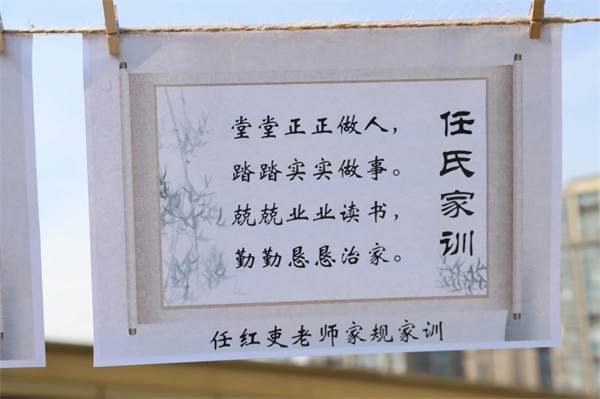 任氏家训
堂堂正正做人，
踏踏实实做事。
兢兢业业读书，
勤勤恳恳治家。
任红吏老师家规家训